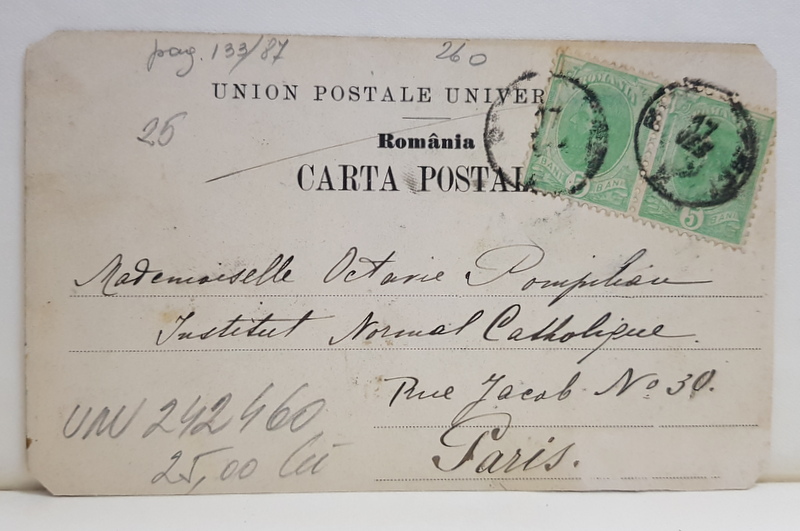 pag. 133/87
260
UNION POSTALE UNIVER
25
România
CARTA POSTAL
ROMANIA
5 BANI
5 BANI
17
17
Mademoiselle Octavie Pompilian
Institut Normal Catholique.
Rue Jacob No 30.
Paris.
242460
25,00 lei